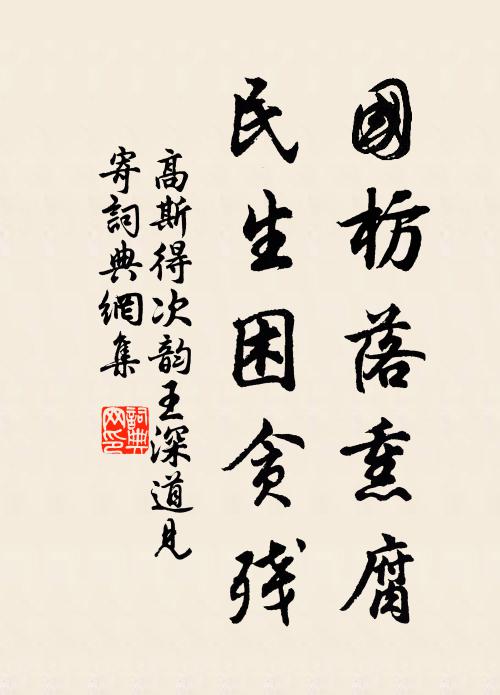 國柄落熏腐
民生困貪残
高斯得次韵王深道見
寄詞典網集
詞典
网印